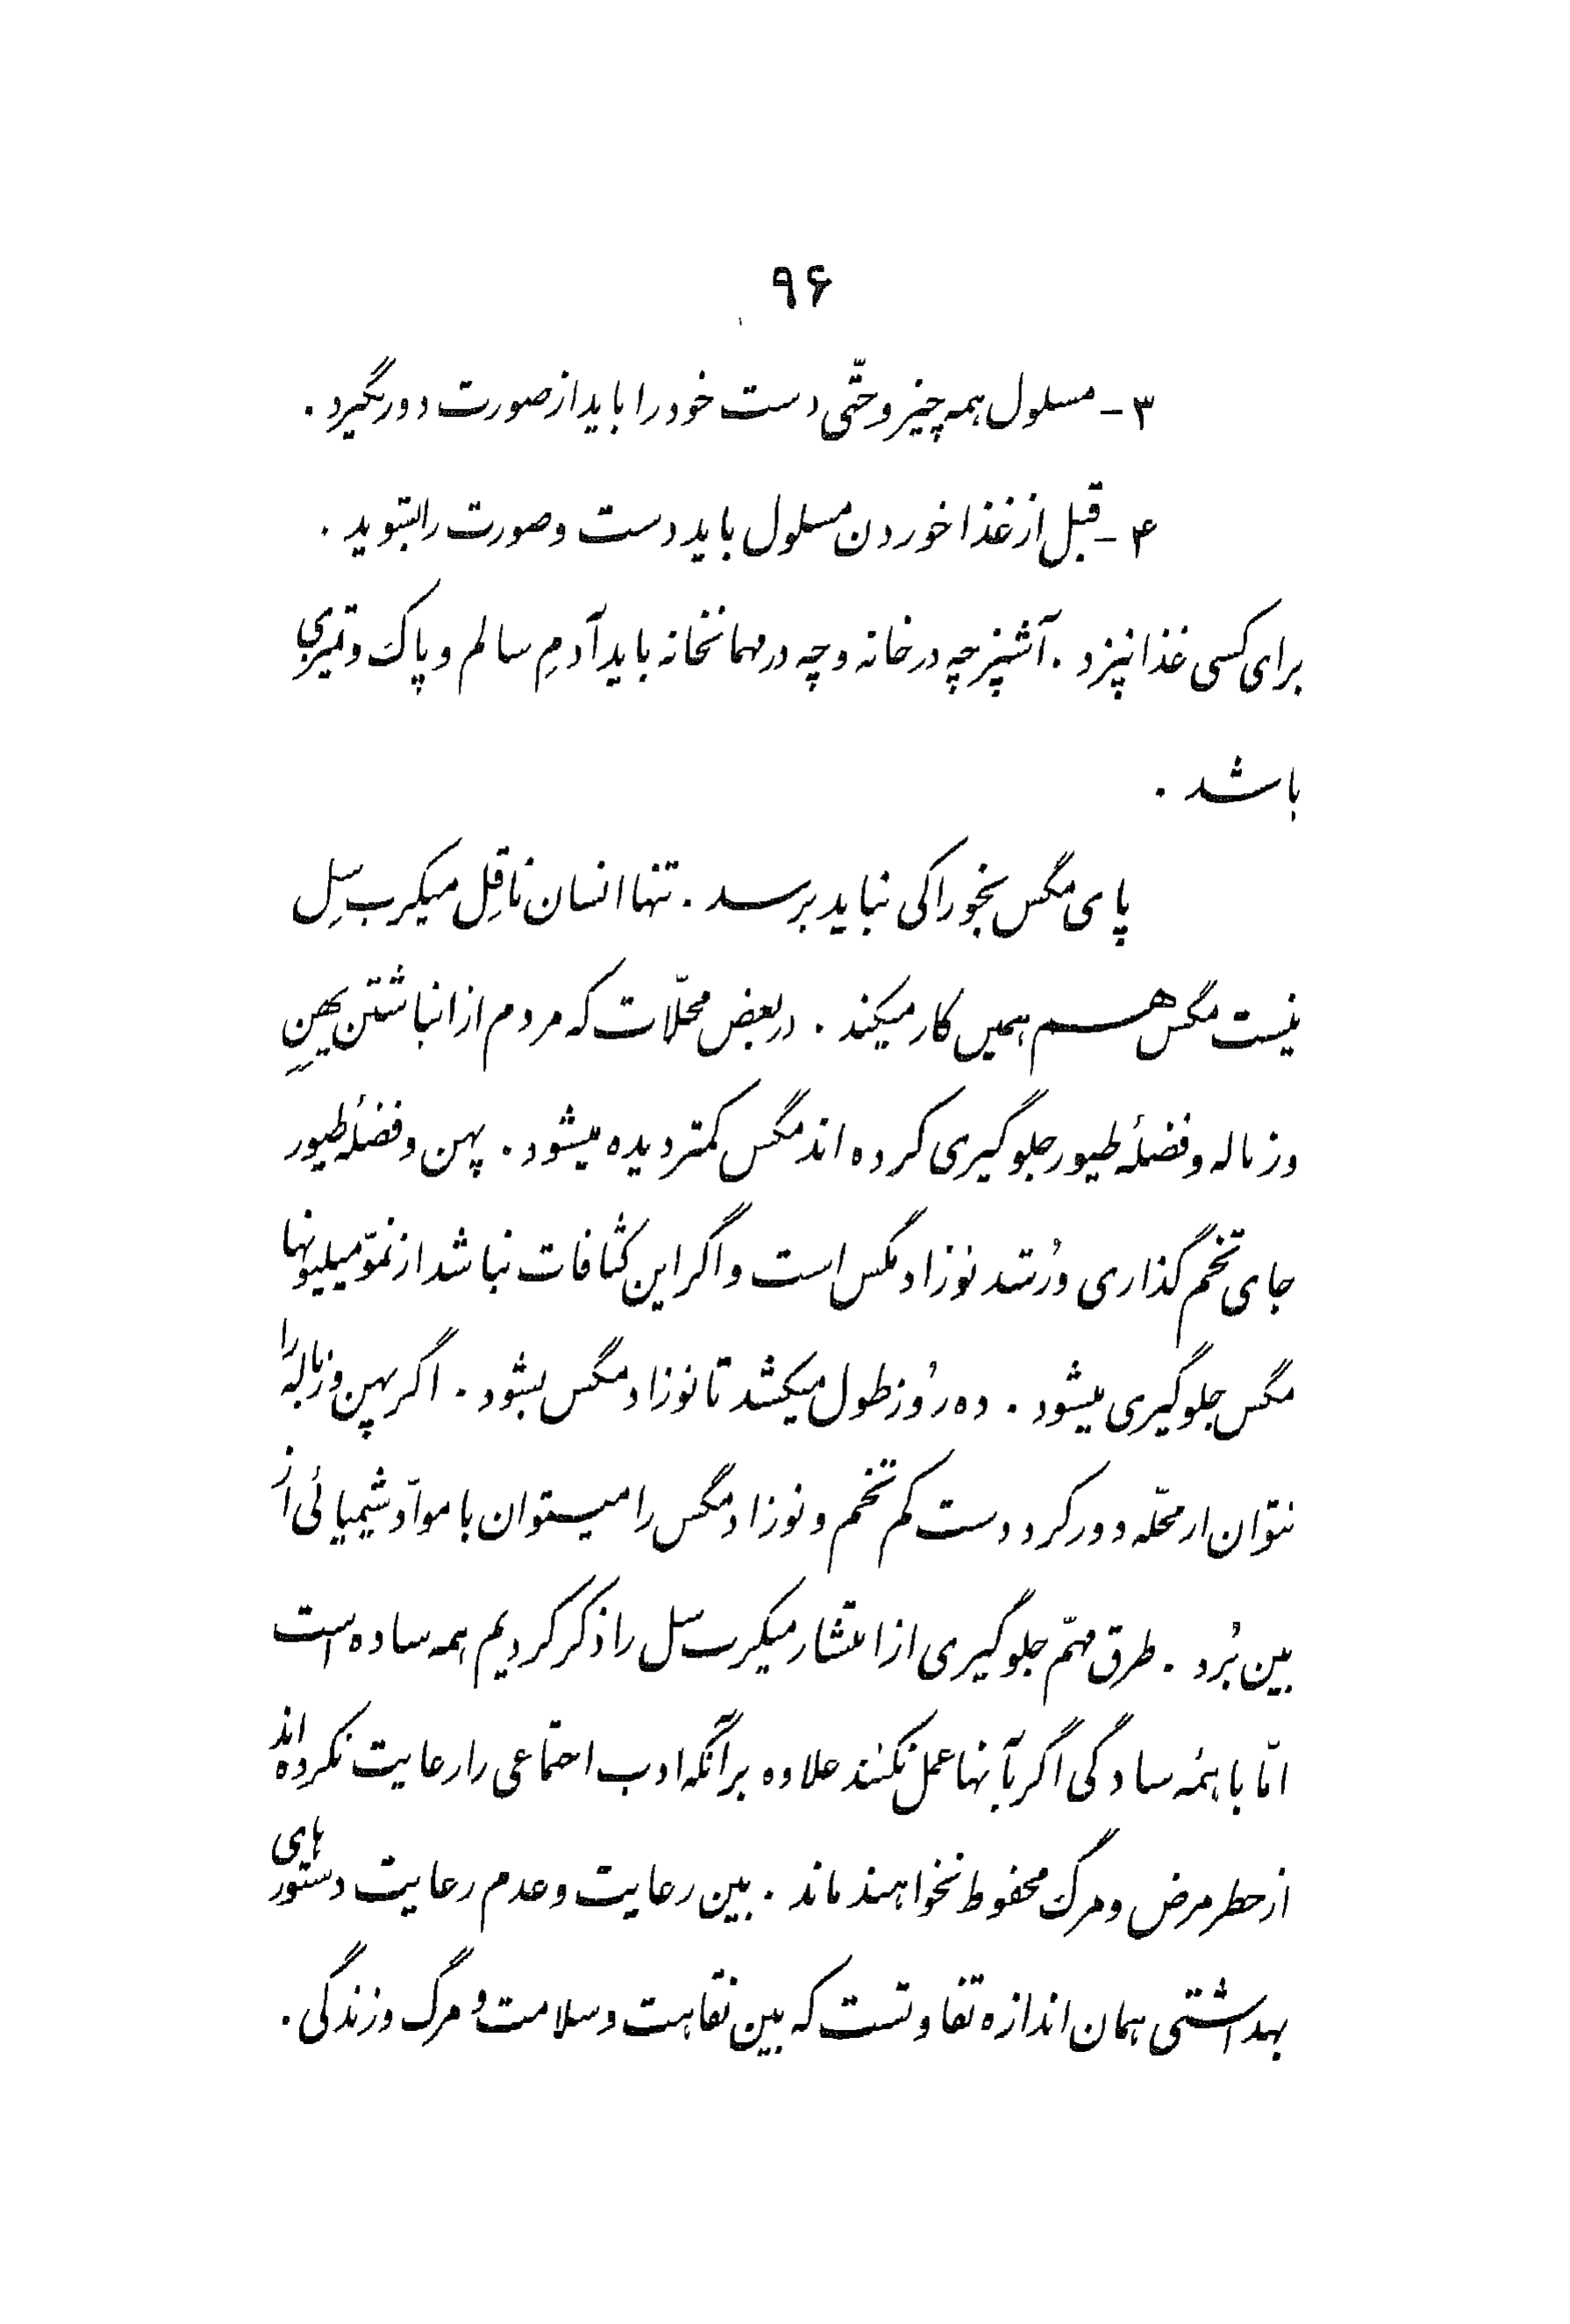 ۹۶
۳- مسلول همه چیز و حتّی دست خود را باید از صورت دور بگیرد .
۴- قبل از غذا خوردن مسلول باید دست و صورت را بشوید .
برای کسی غذا نپزد . آشپز چه در خانه و چه در مهمانخانه باید آدمِ سالم و پاک و تمیزی
باشد .
پای مگس بخوراکی نباید برسد . تنها انسان ناقِل میکرب سِل
نیست مگس هم همین کار میکند . در بعض محلّات که مردم از انباشتن پِهِنِ
و زباله و فضلهٔ طیور جلوگیری کرده اند مگس کمتر دیده میشود . پهن و فضلهٔ طیور
جای تخم گذاری و رُشد نوزاد مگس است و اگر این کثافات نباشد از نموّ میلیونها
مگس جلوگیری میشود . ده رُوز طول میکشد تا نوزاد مگس بشود . اگر پهن و زباله را
نتوان از محلّه دور کرد دست کم تخم و نوزاد مگس را میتوان با موادّ شیمیائی از
بین بُرد . طرق مهمّ جلوگیری از انتشار میکرب سل را ذکر کردیم همه ساده است
امّا با همهٔ سادگی اگر بآنها عمل نکنند علاوه بر آنکه ادب اجتماعی را رعایت نکرده اند
از خطر مرض و مرگ محفوظ نخواهند ماند . بین رعایت و عدم رعایت دستورهای
بهداشتی همان اندازه تفاوتست که بین نقاهت و سلامت وُ مرگ و زندگی .